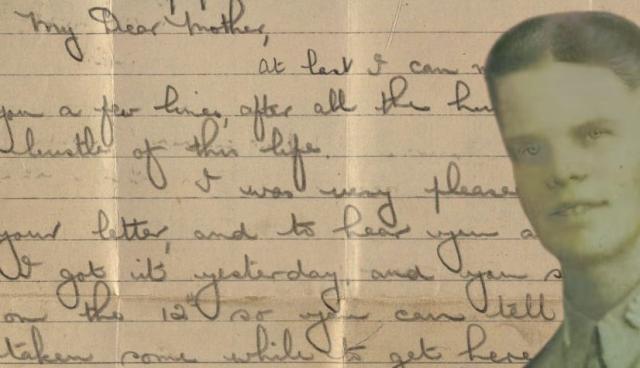 My Dear Mother,
at last I can
you a few lines, after all the
bustle of this life.
I was very
your letter, and to hear you
I got it yesterday, and you
on the 12th so you can tell
taken some while to get here